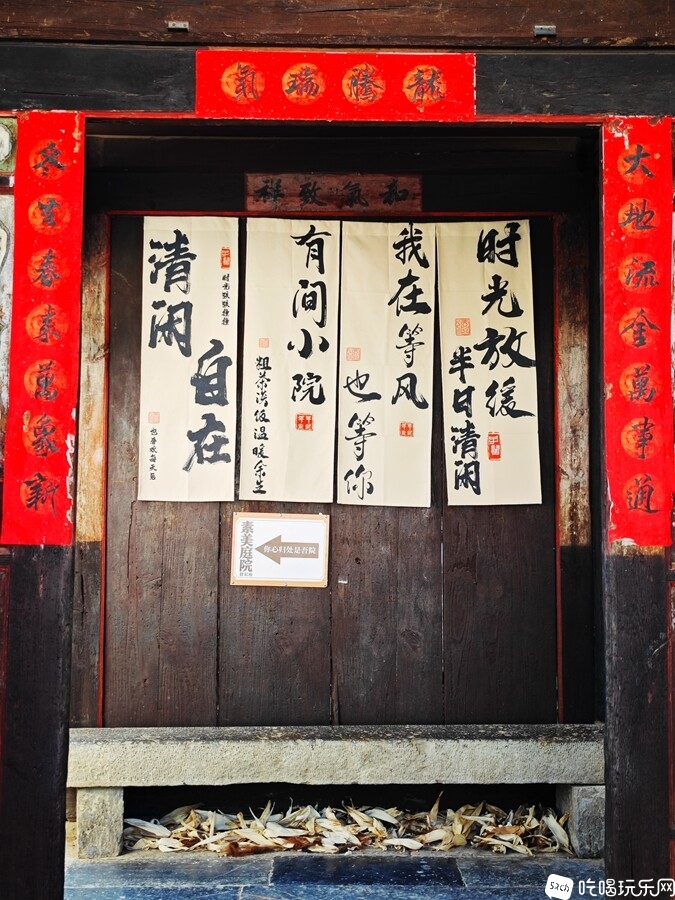 龍騰瑞氣
大地流金萬事通
冬去春來萬象新
和氣致祥
时光放缓
半日清闲
我在等风
也等你
有间小院
粗茶淡饭温暖余生
清闲
自在
素美庭院
你心归处是吾院
52ch 吃喝玩乐网